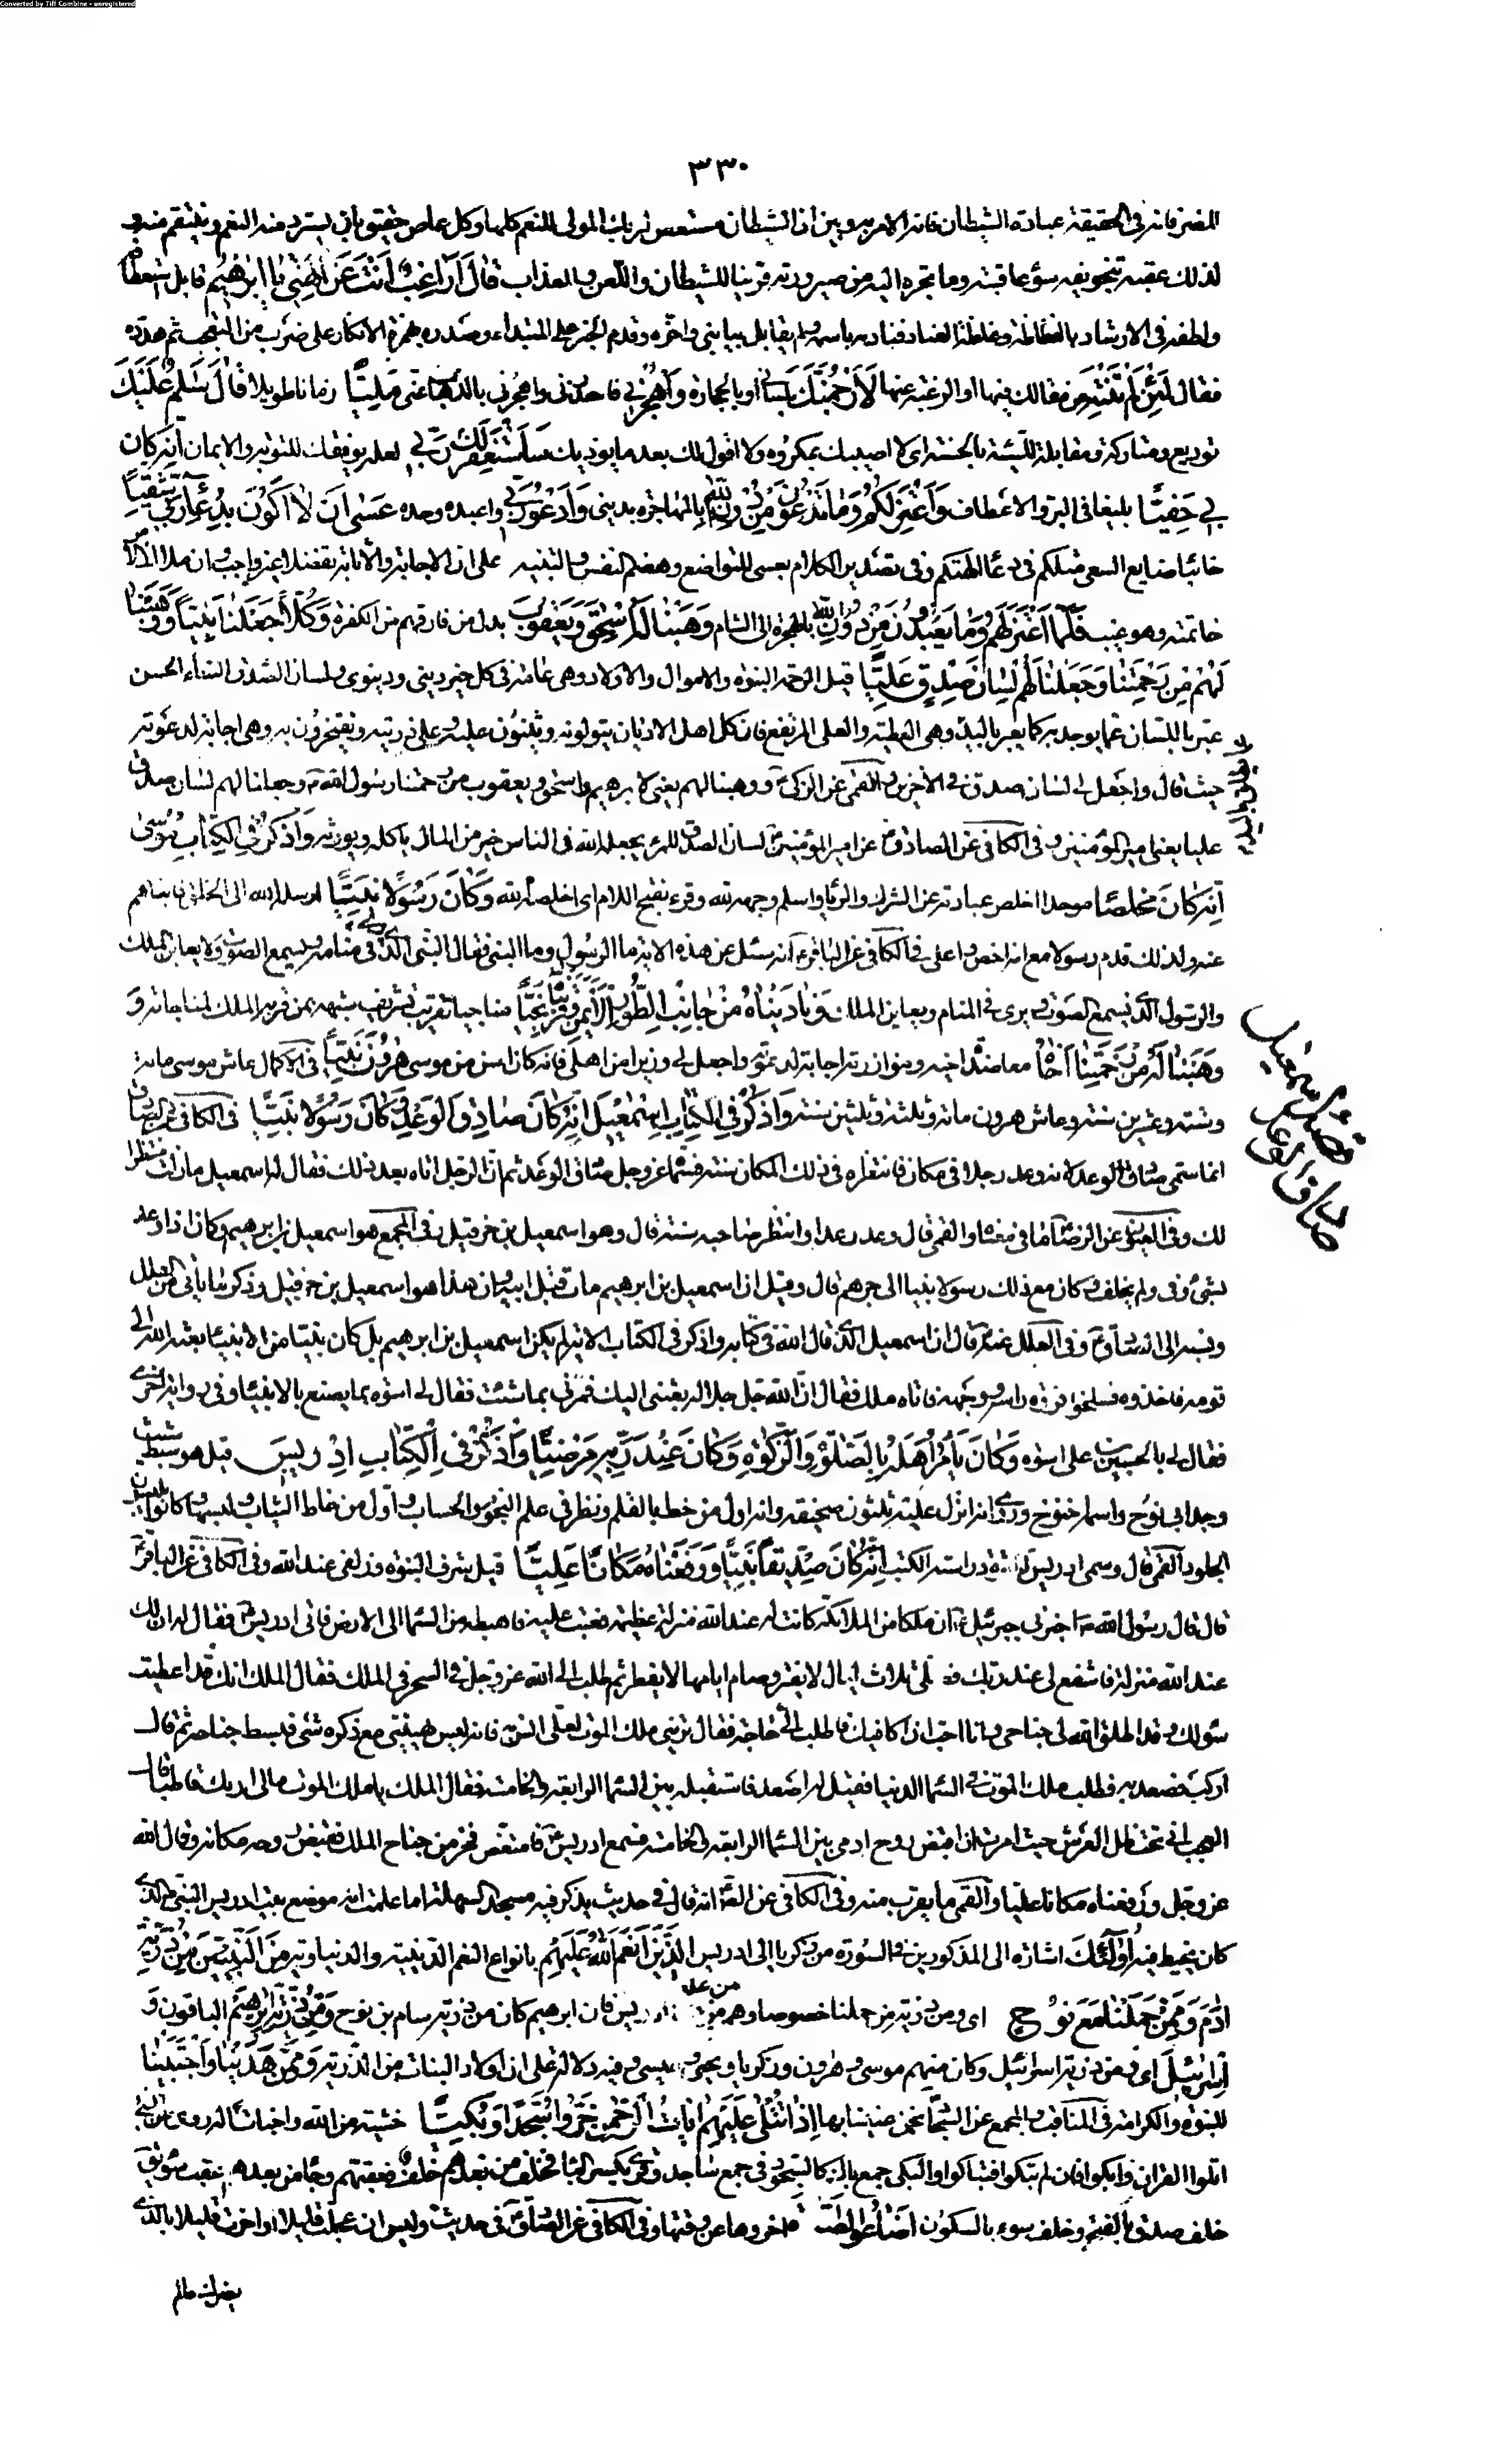 Converted by Tiff Combine - unregistered
٣٣٠
المضر فانه في الحقيقة عبادة الشيطان فانه الامر به وبين ان الشيطان مستعص لربك المولى للنعم كلها وكل عاص حقيق بان يسترد منه النعم وينتقم منه و
لذلك عقبه بتخويفه سوء عاقبته وما يجره اليه من صيرورته قرينا للشيطان واللعن والعذاب قَالَ أَرَاغِبٌ أَنْتَ عَنْ آلِهَتِي يَا إِبْرٰهِيمُ قابل استعطافه
ولطفه في الارشاد بالفظاظة وغلظة العناد فناداه باسمه ولم يقابل بيا بني واخره وقدم الخبر على المبتداء وصدره بهمزة الانكار على ضرب من التعجب ثم هدده
فقال لَئِنْ لَمْ تَنْتَهِ من مقالك فيها او الرغبة عنها لَأَرْجُمَنَّكَ بلساني او بالحجارة وَاهْجُرْنِي فاحذرني واهجرني بالذهاب عني مَلِيًّا زمانا طويلا قَالَ سَلٰمٌ عَلَيْكَ
توديع ومتاركة ومقابلة للسيئة بالحسنة اي لا اصيبك بمكروه ولا اقول لك بعد ما يوذيك سَأَسْتَغْفِرُ لَكَ رَبِّي لعله يوفقك للتوبة والايمان إِنَّهُ كَانَ
بِي حَفِيًّا بليغا في البر والاعطاف وَأَعْتَزِلُكُمْ وَمَا تَدْعُونَ مِنْ دُونِ اللهِ بالمهاجرة بديني وَأَدْعُو رَبِّي واعبده وحده عَسٰى أَنْ لَا أَكُونَ بِدُعَاءِ رَبِّي شَقِيًّا
خائبا ضايع السعي مثلكم في دعاء الهتكم وفي تصدير الكلام بعسى للتواضع وهضم النفس والتنبيه على ان الاجابة والاثابة تفضل غير واجب وان ملاك الامر
خاتمته وهو غيب فَلَمَّا اعْتَزَلَهُمْ وَمَا يَعْبُدُونَ مِنْ دُونِ اللهِ بالهجرة الى الشام وَهَبْنَا لَهُ إِسْحٰقَ وَيَعْقُوبَ بدل من فارقهم من الكفرة وَكُلًّا جَعَلْنَا نَبِيًّا وَوَهَبْنَا
لَهُمْ مِنْ رَحْمَتِنَا وَجَعَلْنَا لَهُمْ لِسَانَ صِدْقٍ عَلِيًّا قيل الرحمة النبوة والاموال والاولاد وهي عامة في كل خير ديني ودنيوي ولسان الصدق الثناء الحسن
عبر باللسان عما يوجد به كما يعبر باليد وهي العطية والعلي المرتفع فان كل اهل الاديان يتولونه ويثنون عليه وعلى ذريته ويفتخرون به وهي اجابة لدعوته
حيث قال واجعل لي لسان صدق في الاخرين والقمي عن الزكي ووهبنا لهم يعني لابرهيم واسحق ويعقوب من رحمتنا رسول الله وجعلنا لهم لسان صدق
عليا يعني امير المؤمنين وفي الكافي عن الصادق عن امير المؤمنين لسان الصدق للمرء يجعله الله في الناس خير من المال ياكله ويورثه وَاذْكُرْ فِي الْكِتَابِ مُوسىٰ
إِنَّهُ كَانَ مُخْلَصًا موحدا اخلص عبادته عن الشرك والرياء واسلم وجهه لله وقرء بفتح اللام اي اخلصه الله وَكَانَ رَسُولًا نَبِيًّا ارسله الله الى الخلق فانباهم
عنه ولذلك قدم رسولا مع انه اخص واعلى في الكافي عن الباقر انه سئل عن هذه الاية ما الرسول وما النبي فقال النبي الذي يرى في منامه ويسمع الصوت ولا يعاين الملك
والرسول الذي يسمع الصوت ويرى في المنام ويعاين الملك وَنَادَيْنَاهُ مِنْ جَانِبِ الطُّورِ الْأَيْمَنِ وَقَرَّبْنَاهُ نَجِيًّا مناجيا تقريب تشريف شبهه بمن قربه الملك لمناجاته وَ
وَهَبْنَا لَهُ مِنْ رَحْمَتِنَا أَخَاهُ معاضدة اخيه وموازرته اجابة لدعوته واجعل لي وزيرا من اهلي فانه كان اسن من موسى هٰرُونَ نَبِيًّا في الاكمال عاش موسى مائة
وستة وعشرين سنة وعاش هرون مائة وثلثة وثلثين سنة وَاذْكُرْ فِي الْكِتَابِ إِسْمٰعِيلَ إِنَّهُ كَانَ صَادِقَ الْوَعْدِ وَكَانَ رَسُولًا نَبِيًّا في الكافي عن الصادق
انما سمي صادق الوعد لانه وعد رجلا في مكان فانتظره في ذلك المكان سنة فسماه عز وجل صادق الوعد ثم ان الرجل اتاه بعد ذلك فقال له اسمعيل ما زلت منتظرا
لك وفي العيون عن الرضا ما في معناه والقمي قال وعد وعدا وانتظر صاحبه سنة قال وهو اسمعيل بن حزقيل وفي المجمع هو اسمعيل بن ابرهيم وكان اذا وعد
بشيء وفى ولم يخلف وكان مع ذلك رسولا نبيا الى جرهم قال وقيل ان اسمعيل بن ابرهيم مات قبل ابيه وان هذا هو اسمعيل بن حزقيل وذكر ما ياتي من العلل
ونسبه الى الصادق وفي العلل عنه قال ان اسمعيل الذي قال الله في كتابه واذكر في الكتاب الاية لم يكن اسمعيل بن ابرهيم بل كان نبيا من الانبياء بعثه الله الى
قومه فاخذوه فسلخوا فروة راسه ووجهه فاتاه ملك فقال ان الله جل جلاله بعثني اليك فمرني بما شئت فقال لي اسوة بما يصنع بالانبياء وفي رواية اخرى
فقال لي بالحسين بن علي اسوة وَكَانَ يَأْمُرُ أَهْلَهُ بِالصَّلٰوةِ وَالزَّكٰوةِ وَكَانَ عِنْدَ رَبِّهِ مَرْضِيًّا وَاذْكُرْ فِي الْكِتَابِ إِدْرِيسَ قيل هو سبط شيث
وجد ابي نوح واسمه اخنوخ وروي انه انزل عليه ثلثون صحيفة وانه اول من خط بالقلم ونظر في علم النجوم والحساب واول من خاط الثياب ولبسها وكانوا يلبسون
الجلود القمي قال وسمي ادريس لكثرة دراسته الكتب إِنَّهُ كَانَ صِدِّيقًا نَبِيًّا وَرَفَعْنَاهُ مَكَانًا عَلِيًّا قيل شرف النبوة وزلفى عند الله وفي الكافي عن الباقر
قال قال رسول الله اخبرني جبرئيل ان ملكا من الملائكة كانت له عند الله منزلة عظيمة فعتب عليه فاهبط من السماء الى الارض فاتى ادريس فقال له ان لك
عند الله منزلة فاشفع لي عند ربك فصلى ثلاث ليال لا يفتر وصام ايامها لا يفطر ثم طلب الى الله عز وجل في السحر في الملك فقال الملك انك قد اعطيت
سؤلك وقد اطلق الله لي جناحي وانا احب ان اكافيك فاطلب الي حاجة فقال تريني ملك الموت لعلي انس به فانه ليس يهنئني مع ذكره شيء فبسط جناحه ثم قال
اركب فصعد به فطلب ملك الموت في السماء الدنيا فقيل له اصعد فاستقبله بين السماء الرابعة والخامسة فقال الملك يا ملك الموت مالي اراك قاطبا قال
العجب اني تحت ظل العرش حيث امرت ان اقبض روح ادمي بين السماء الرابعة والخامسة فسمع ادريس فامتعض فخر من جناح الملك فقبض روحه مكانه وقال الله
عز وجل ورفعناه مكانا عليا والقمي ما يقرب منه وفي الكافي عن الصادق انه قال في حديث يذكر فيه مسجد السهلة اما علمت انه موضع بيت ادريس النبي الذي
كان يخيط فيه أُولٰئِكَ اشارة الى المذكورين في السورة من زكريا الى ادريس الَّذِينَ أَنْعَمَ اللهُ عَلَيْهِمْ بانواع النعم الدينية والدنياوية مِنَ النَّبِيِّينَ مِنْ ذُرِّيَّةِ
اٰدَمَ وَمِمَّنْ حَمَلْنَا مَعَ نُوحٍ اي ومن ذرية من حملنا خصوصا وهم من عدا ادريس فان ابرهيم كان من ذرية سام بن نوح وَمِنْ ذُرِّيَّةِ إِبْرٰهِيمَ الباقون وَ
إِسْرٰئِيلَ اي ومن ذرية اسرائيل وكان منهم موسى وهرون وزكريا ويحيى وعيسى وفيه دلالة على ان اولاد البنات من الذرية وَمِمَّنْ هَدَيْنَا وَاجْتَبَيْنَا
للنبوة والكرامة في المناقب والمجمع عن السجاد نحن عنينا بها إِذَا تُتْلٰى عَلَيْهِمْ اٰيَاتُ الرَّحْمٰنِ خَرُّوا سُجَّدًا وَبُكِيًّا خشية من الله واخباتا له روي عن النبي
اتلوا القران وابكوا فان لم تبكوا فتباكوا والبكي جمع باك كالسجود في جمع ساجد وقرء بكسر الباء فَخَلَفَ مِنْ بَعْدِهِمْ خَلْفٌ فعقبهم وجاء من بعدهم عقب سوء يق
خلف صدق بالفتح وخلف سوء بالسكون أَضَاعُوا الصَّلٰوةَ اخروها عن وقتها وفي الكافي عن الصادق في حديث وليس ان عجلت قليلا او اخرت قليلا بالذي
يضرك مالم
قصة اسمعيل
صادق الوعد